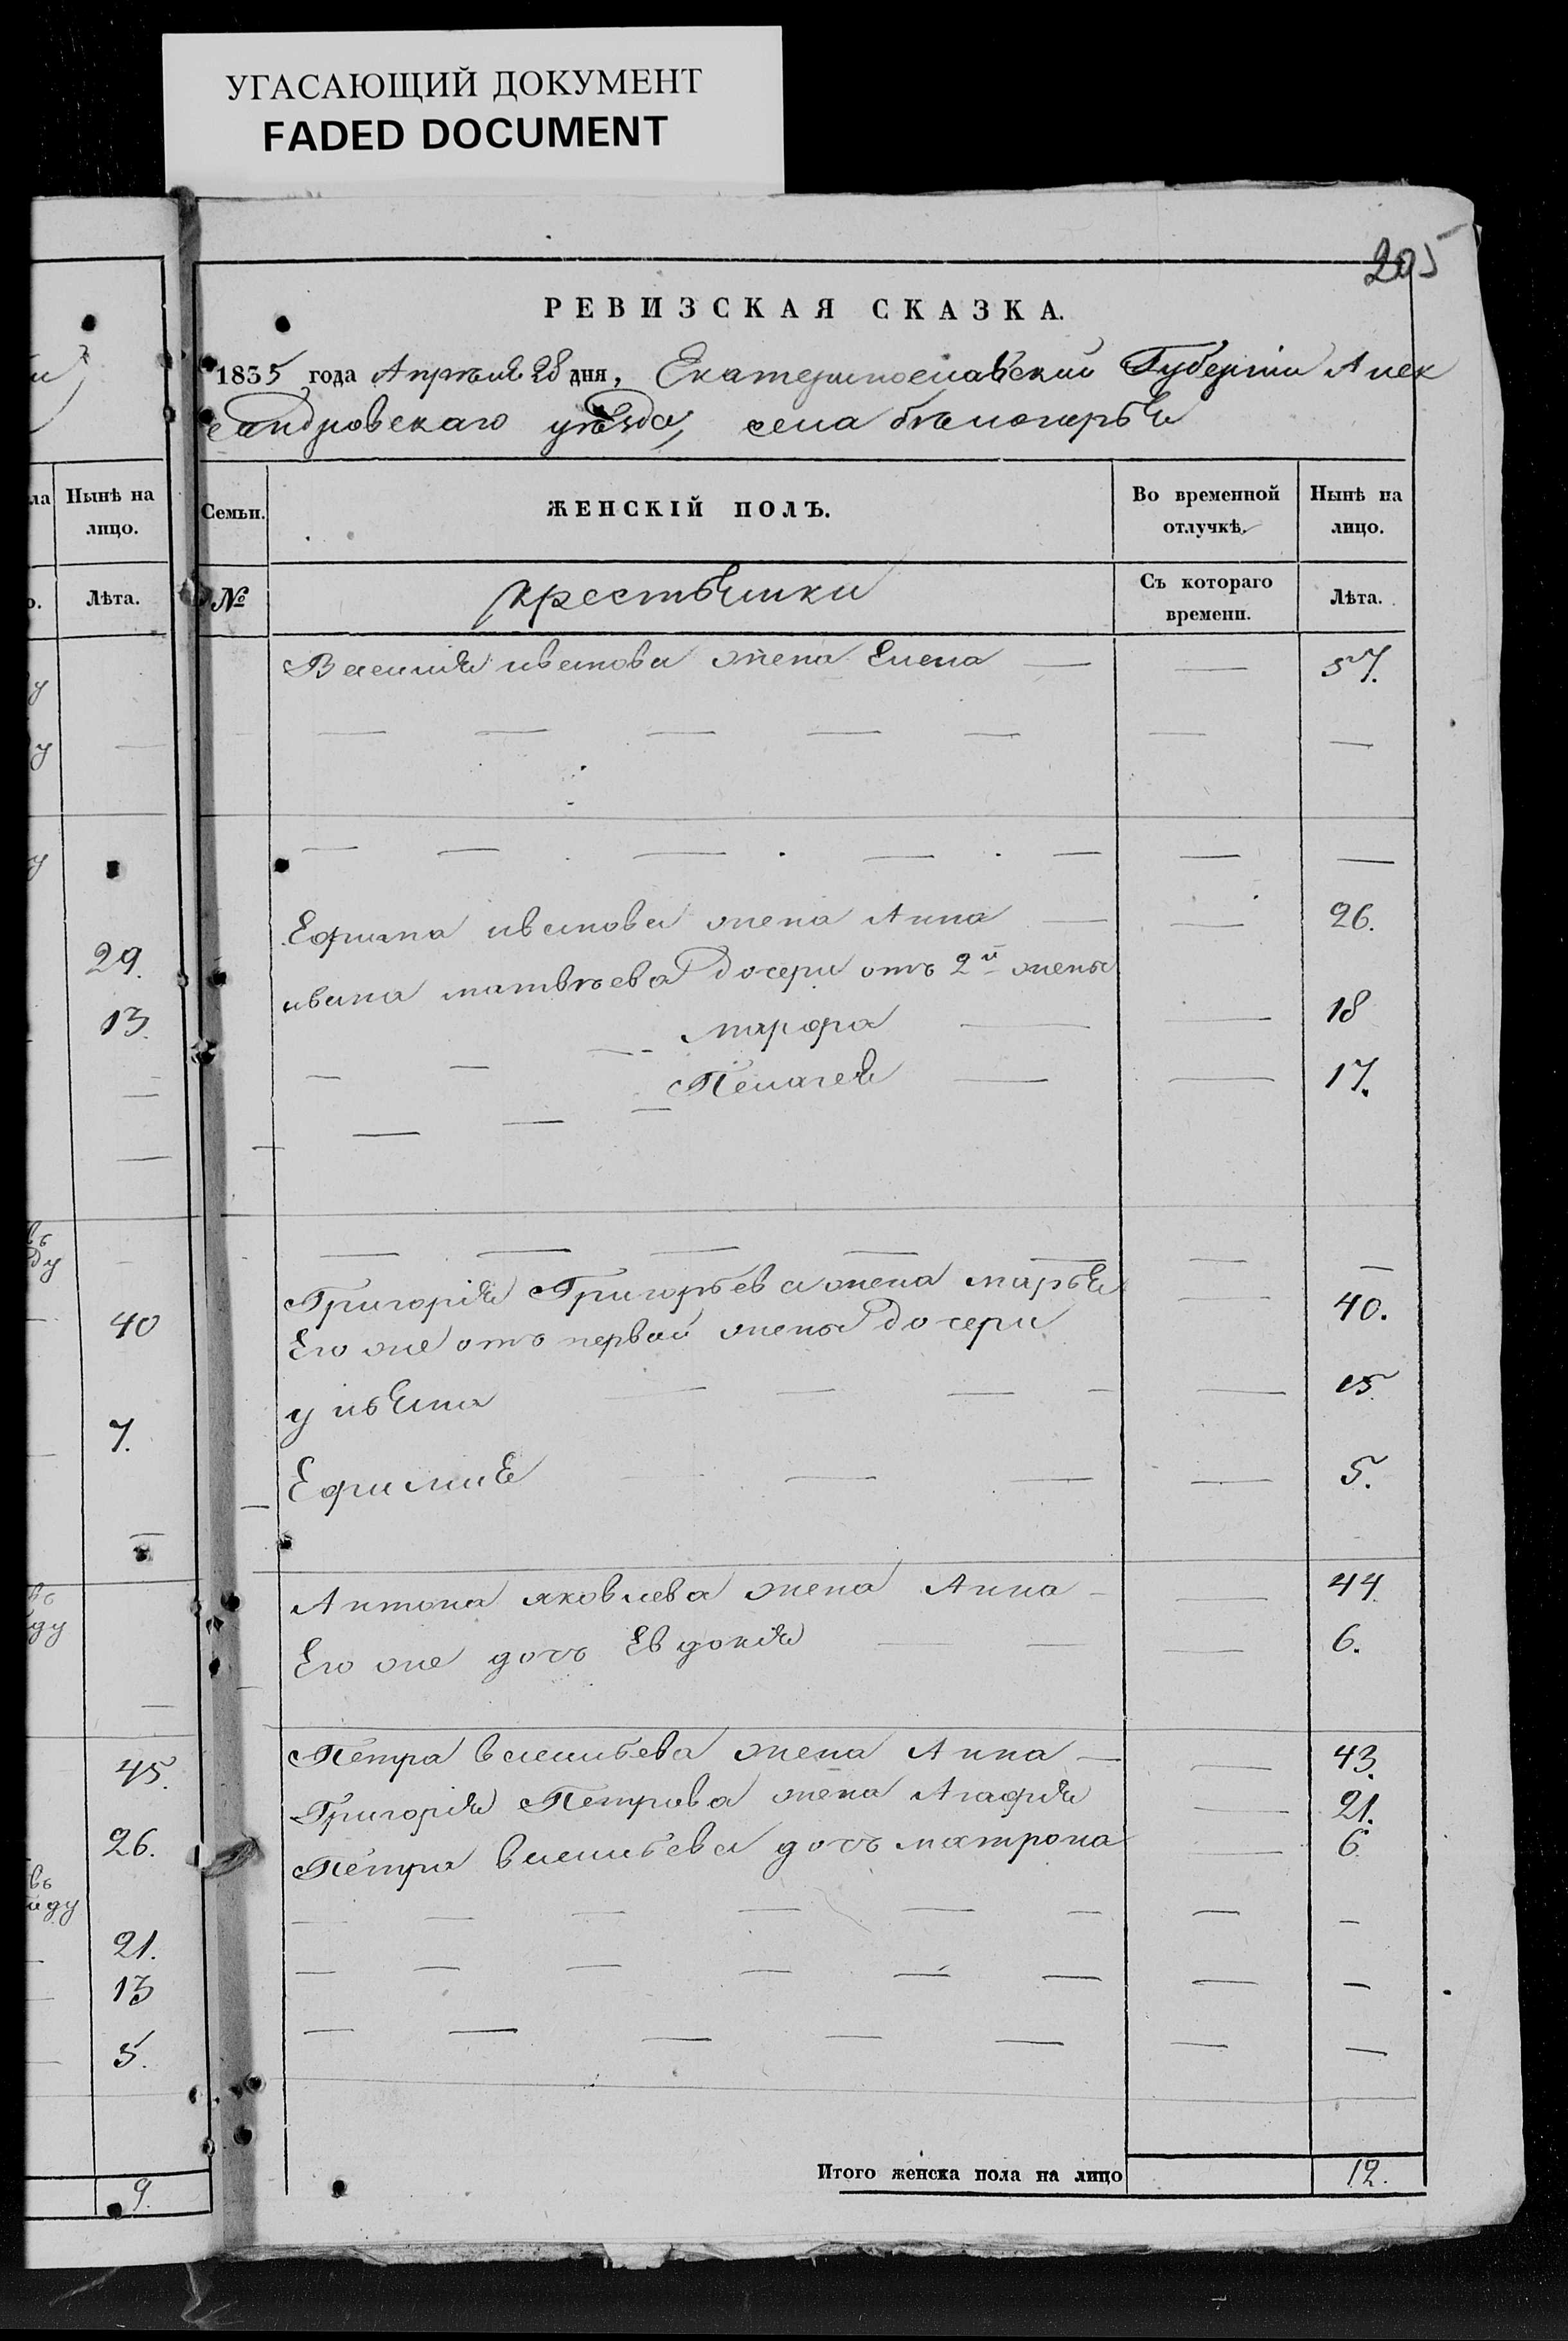 УГАСАЮЩИЙ ДОКУМЕНТ
FADED DOCUMENT
205
РЕВИЗСКАЯ СКАЗКА.
1835 года Апреля 28 дня, Екатеринославской Губернии Алек
сандровскаго уѣзда, села бѣлогорья
ла Нынѣ на лицо.
Лѣта.
29.
13.
40
7.
45.
26.
21.
13
5.
9.
Семьи. ЖЕНСКІЙ ПОЛЪ. Во временной отлучкѣ. Нынѣ на лицо.
№ крестьянки Съ котораго времени. Лѣта.
Василия иванова жена Елена — — 57.
Ефима иванова жена Анна — — 26.
ивана матвѣева дочери отъ 2й жены
марфа — — 18
Пелагея — — 17.
Григорія Григорьева жена марья — 40.
Его же отъ первой жены дочери
ульяна — — — — — 15.
Ефимия — — — — 5.
Антона яковлева жена Анна — — 44.
Его же дочь Евдокія — — — 6.
Петра васильева жена Анна — — 43.
Григорія Петрова жена Агафія — 21.
Петра васильева дочь матрона — 6.
Итого женска пола на лицо 12.